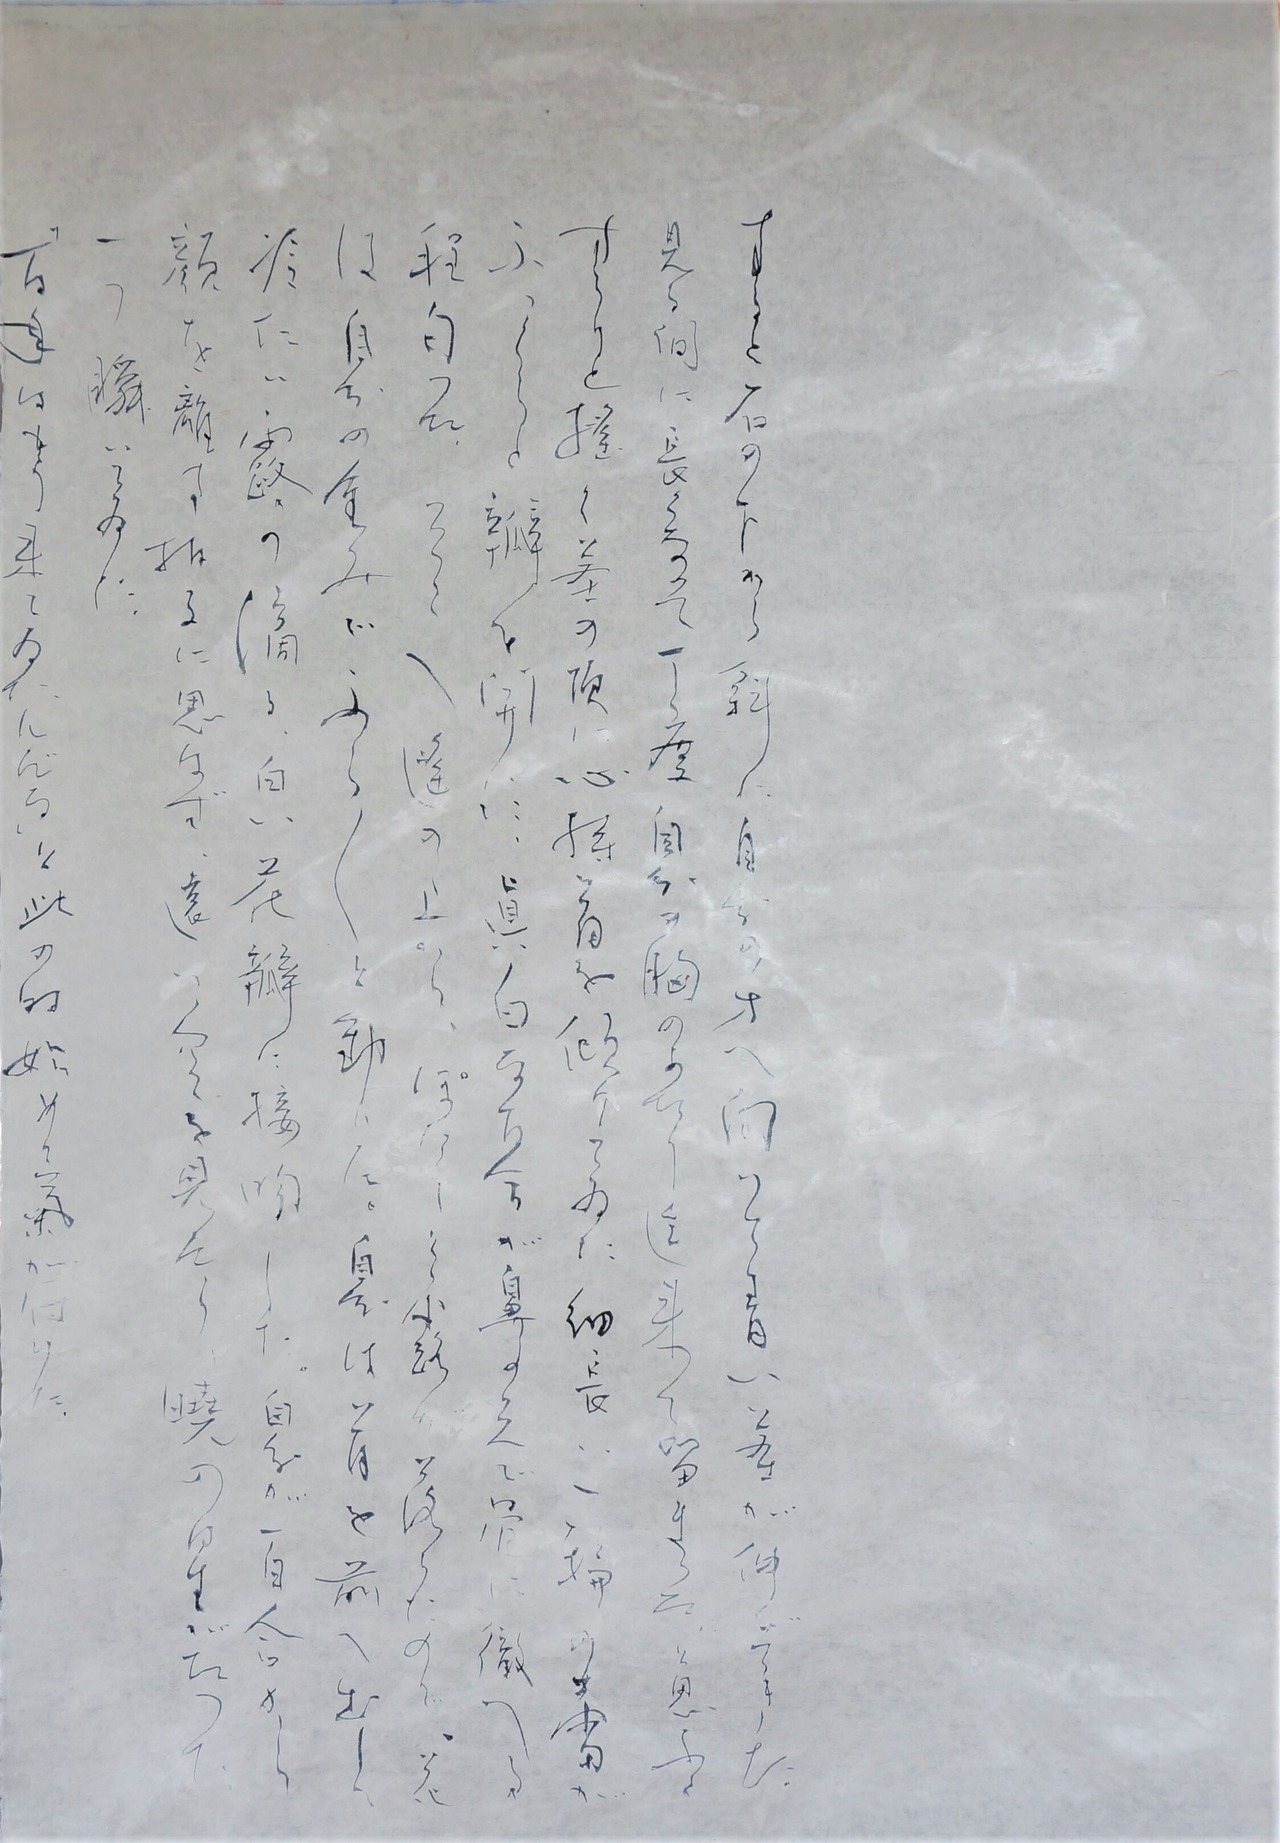 すると石の下から斜に自分の方へ向いて青い莖が伸びて来た
見る間に長くなつて丁度自分の胸のあたり迄来て留まつた、と思ふと
すらりと搖ぐ莖の頂に心持首を傾けてゐた細長い一輪の蕾が
ふつくらと瓣を開いた、眞白な百合が鼻の先で骨に徹へる
程匂つた、そこへ遥の上から、ぽたりと露が落ちたので、花
は自分の重みでふら〳〵と動いた。自分は首を前へ出して
冷たい露の滴る、白い花瓣に接吻した。自分が百合から
顔を離す拍子に思はず、遠い空を見たら、曉の星がたつた
一つ瞬いてゐた、
『百年はもう来てゐたんだな』と此の時始めて氣が付いた、